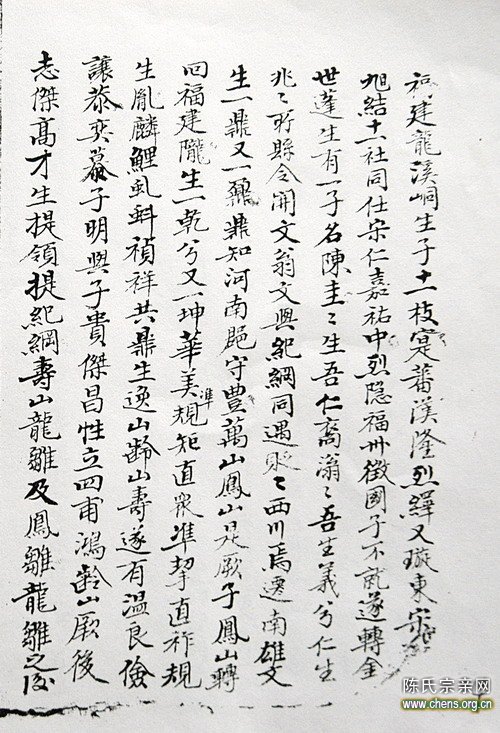 福建龍溪峒生子十一枝寔蕃漢隆烈繹又璇東宗
旭結十一社同仕宋仁嘉祐中烈隐福州徵國子不就遂轉金
世蓮生有一子名陳圭〻生吾仁裔滃〻吾生義兮仁生
兆〻所縣令開文翁文興紀綱同遇〻西川焉遷南雄文
生一鼎又一鼐鼎知河南邑守豊萬山鳳山是厥子鳳山轉
回福建隴生一乾兮又一坤華美規準矩直衆準挈直祚規
生胤麟鯉虬蚪禎祥共鼎生逸山齡山壽遂有温良儉
讓恭奕慕子明興子貴傑昌性立四甫鴻齡山厥後
志傑高才生提領提紀綱壽山龍雛及鳳雛龍雛之後
陈氏宗亲网
www.chens.org.cn